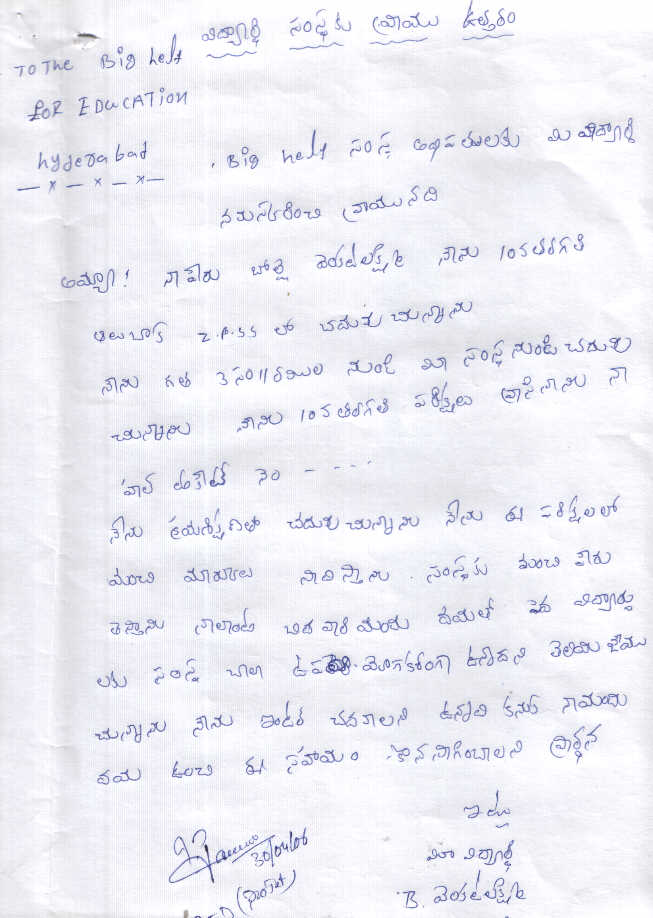 విద్యార్థి సంస్థకు వ్రాయు ఉత్తరం
TO The Big help
FOR EDUCATION
hyderabad
. Big help సంస్థ అధిపతులకు మి విద్యార్థి
నమస్కరించి వ్రాయునది
అమ్మా! నా పేరు బొల్లి వెంకటలక్ష్మి నాను 10వ తరగతి
ఆలుబాక Z.P.SS లో చదువు చున్నాను
నాను గత 3 సం॥రముల నుండి మీ సంస్థ నుండి చదువు
చున్నాను నాను 10వ తరగతి పరిక్షలు వ్రాసినాను నా
హల్ టికెట్ నెం - - - -
నేను క్రమశిక్షణతో చదువు చున్నాను నేను ఈ పరిక్షలలో
మంచి మార్కులు సాదిస్తాను . సంస్థకు మంచి పేరు
తెస్తాను నాలాంటి బిద వారి మందు దయలో పెద విద్యార్థు
లకు సంస్థ చాలా ఉప యోగకరంగా ఉన్నదని తెలియ జేయు
చున్నాను నాను ఇంటర్ చదవాలని ఉన్నది కనుక నాయందు
దయ ఉంచి ఈ సహాయం కొనసాగించాలని ప్రార్థన
ఇట్లు
మీ విద్యార్థి
B. వెంకటలక్ష్మి
30/04/06